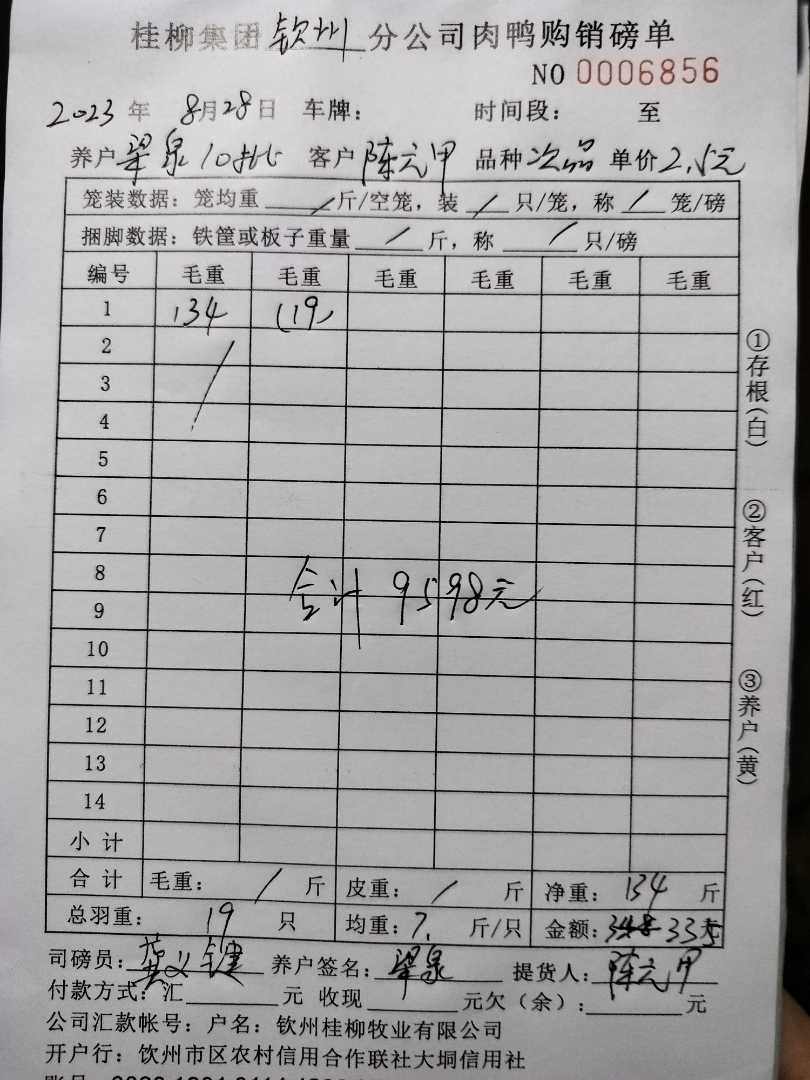 桂柳集团钦州分公司肉鸭购销磅单
NO 0006856
2023年 8月28日 车牌： 时间段： 至
养户梁泉10批 客户陈元甲 品种次品 单价2.5元
笼装数据：笼均重 / 斤/空笼，装 / 只/笼，称 / 笼/磅
捆脚数据：铁筐或板子重量 / 斤，称 / 只/磅
编号 毛重 毛重 毛重 毛重 毛重 毛重
1 134 (19)
2
3
4
5
6
7
8
合计 9598元
9
10
11
12
13
14
小计
合计 毛重： / 斤 皮重： / 斤 净重：134 斤
总羽重： 19 只 均重：7. 斤/只 金额：335元
司磅员： 养户签名：梁泉 提货人：陈元甲
付款方式：汇 元 收现 元欠（余）： 元
公司汇款帐号：户名：钦州桂柳牧业有限公司
开户行：钦州市区农村信用合作联社大垌信用社
①存根（白）
②客户（红）
③养户（黄）